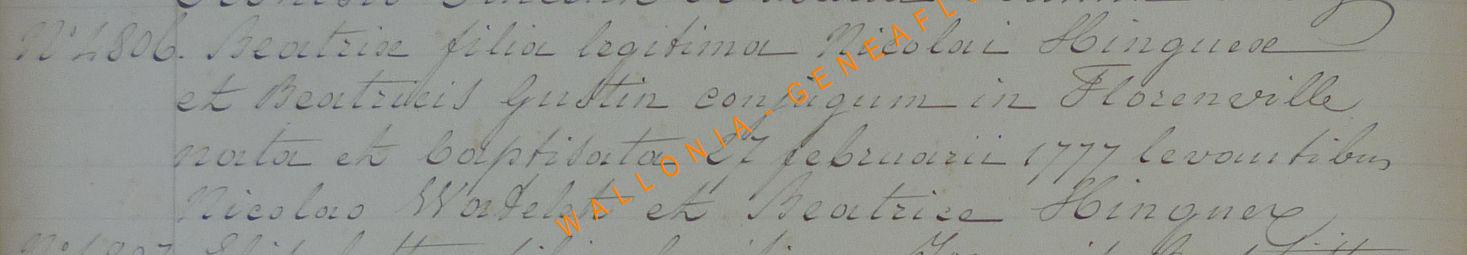 N° 4806. Beatrix filia legitima Nicolai Hinguex
et Beatricis Gustin conjugum in Florenville
nata et baptisata 27 februarii 1777 levantibus
Nicolao Watelet et Beatrice Hinguex
WALLONIA - GENEAFL